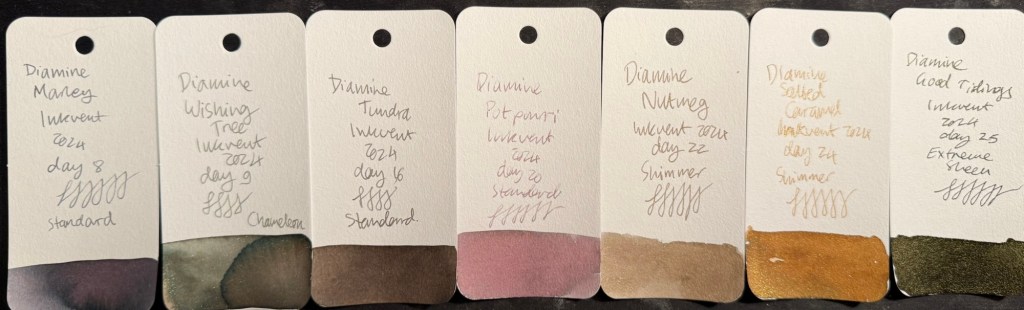 Diamine
Marley
Inkvent
2024
day 8
Standard
Diamine
Wishing
Tree
Inkvent
2024
day 9
Chameleon
Diamine
Tundra
Inkvent
2024
day 16
Standard
Diamine
Potpourri
Inkvent
2024
day 20
Standard
Diamine
Nutmeg
Inkvent 2024
day 22
Shimmer
Diamine
Salted
Caramel
Inkvent 2024
day 24
Shimmer
Diamine
Good Tidings
Inkvent
2024
day 25
Extreme
Sheen